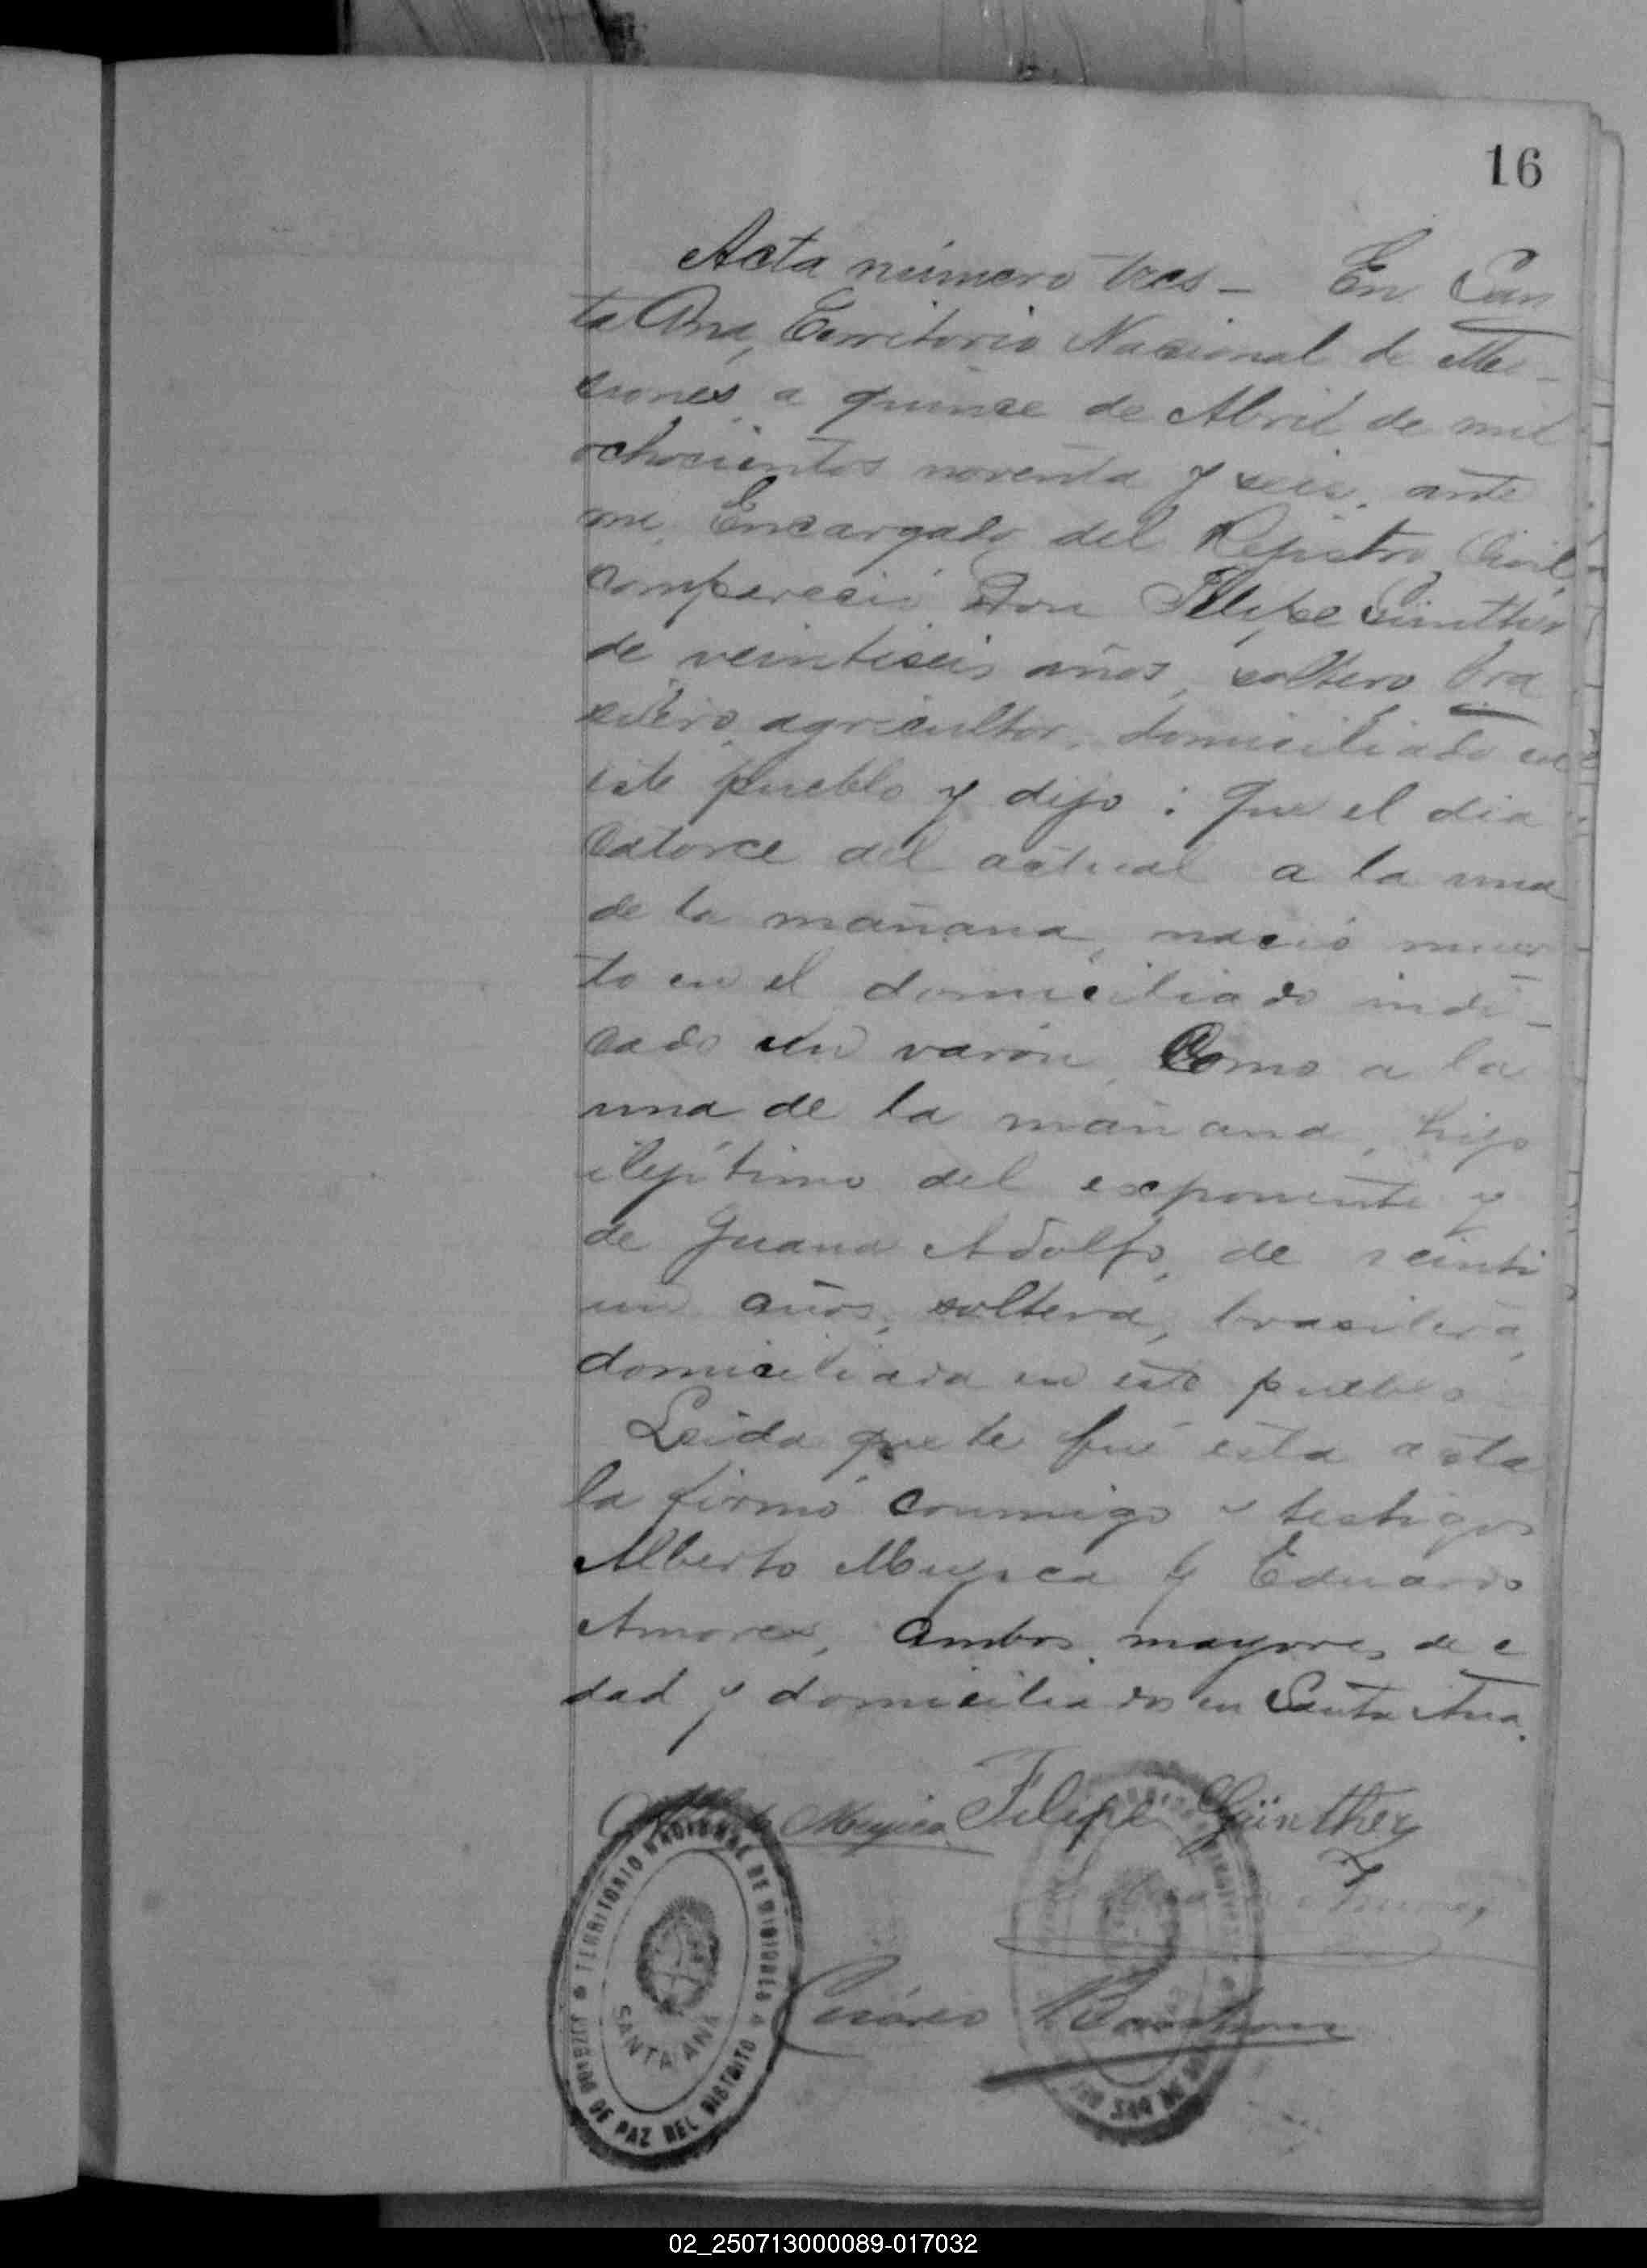 16
Acta número tres - En San
ta Ana, Territorio Nacional de Mi-
siones a quince de Abril de mil
ochocientos noventa y seis, ante
mi, Encargado del Rejistro Civil,
compareció Don Filipe Günther
de veintiseis años, soltero bra
silero agricultor, domiciliado en
este pueblo y dijo: Que el dia
catorce del actual a la una
de la mañana, nació muer
to en el domiciliado indi-
cado un varon, Como a la
una de la mañana, hijo
ilejítimo del exponente y
de Juana Adolfo, de veinti
un años, soltera, brasilera,
domiciliada en este pueblo
Leida que le fué esta acta
la firmó conmigo y testigos
Alberto Mujica y Eduardo
Amores, ambos mayores de e
dad y domiciliados en Santa Ana.
Mujica Filipe Günther
TERRITORIO NACIONAL DE MISIONES
JUZGADO DE PAZ DEL DISTRITO
SANTA ANA
02_250713000089-017032